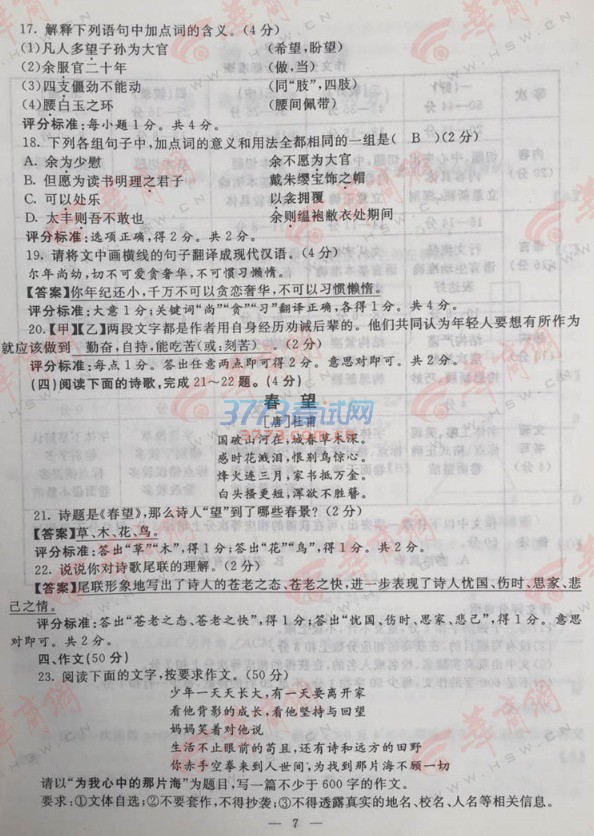 17. 解释下列语句中加点词的含义。(4分)
(1)凡人多望子孙为大官 (希望,盼望)
(2)余服官二十年 (做,当)
(3)四支僵劲不能动 (同“肢”,四肢)
(4)腰白玉之环 (腰间佩带)
评分标准:每小题1分。共4分。
18. 下列各组句子中,加点词的意义和用法全都相同的一组是( B )(2分)
A. 余为少慰 余不愿为大官
B. 但愿为读书明理之君子 戴朱缨宝饰之帽
C. 可以处乐 以衾拥覆
D. 太丰则吾不敢也 余则缊袍敝衣处期间
评分标准:选项正确,得2分。共2分。
19. 请将文中画横线的句子翻译成现代汉语。(4分)
尔年尚幼,切不可爱贪奢华,不可惯习懒惰。
【答案】你年纪还小,千万不可以贪恋奢华,不可以习惯懒惰。
评分标准:大意1分;关键词“尚”“贪”“习”翻译正确,各得1分。共4分。
20.【甲】【乙】两段文字都是作者用自身经历劝诫后辈的。他们共同认为年轻人要想有所作为
就应该做到 勤奋,自持,能吃苦(或:刻苦) 。(2分)
评分标准:每点1分。答出任意两点即可得2分。意思对即可。共2分。
(四)阅读下面的诗歌,完成21～22题。(4分)
春 望
[唐]杜甫
国破山河在,城春草木深。
感时花溅泪,恨别鸟惊心。
烽火连三月,家书抵万金。
白头搔更短,浑欲不胜簪。
21. 诗题是《春望》,那么诗人“望”到了哪些春景?(2分)
【答案】草、木、花、鸟。
评分标准:答出“草”“木”,得1分;答出“花”“鸟”,得1分。共2分。
22. 说说你对诗歌尾联的理解。(2分)
【答案】尾联形象地写出了诗人的苍老之态、苍老之快,进一步表现了诗人忧国、伤时、思家、悲
己之情。
评分标准:答出“苍老之态、苍老之快”,得1分;答出“忧国、伤时、思家、悲己”,得1分。意思
对即可。共2分。
四、作文(50分)
23. 阅读下面的文字,按要求作文。(50分)
少年一天天长大,有一天要离开家
看他背影的成长,看他坚持与回望
妈妈笑着对他说
生活不止眼前的苟且,还有诗和远方的田野
你赤手空拳来到人世间,为找到那片海不顾一切
请以“为我心中的那片海”为题目,写一篇不少于600字的作文。
要求:①文体自选;②不要套作,不得抄袭;③不得透露真实的地名、校名、人名等相关信息。
— 7 —
3773考试网
3773.com
华商网
HSW.CN